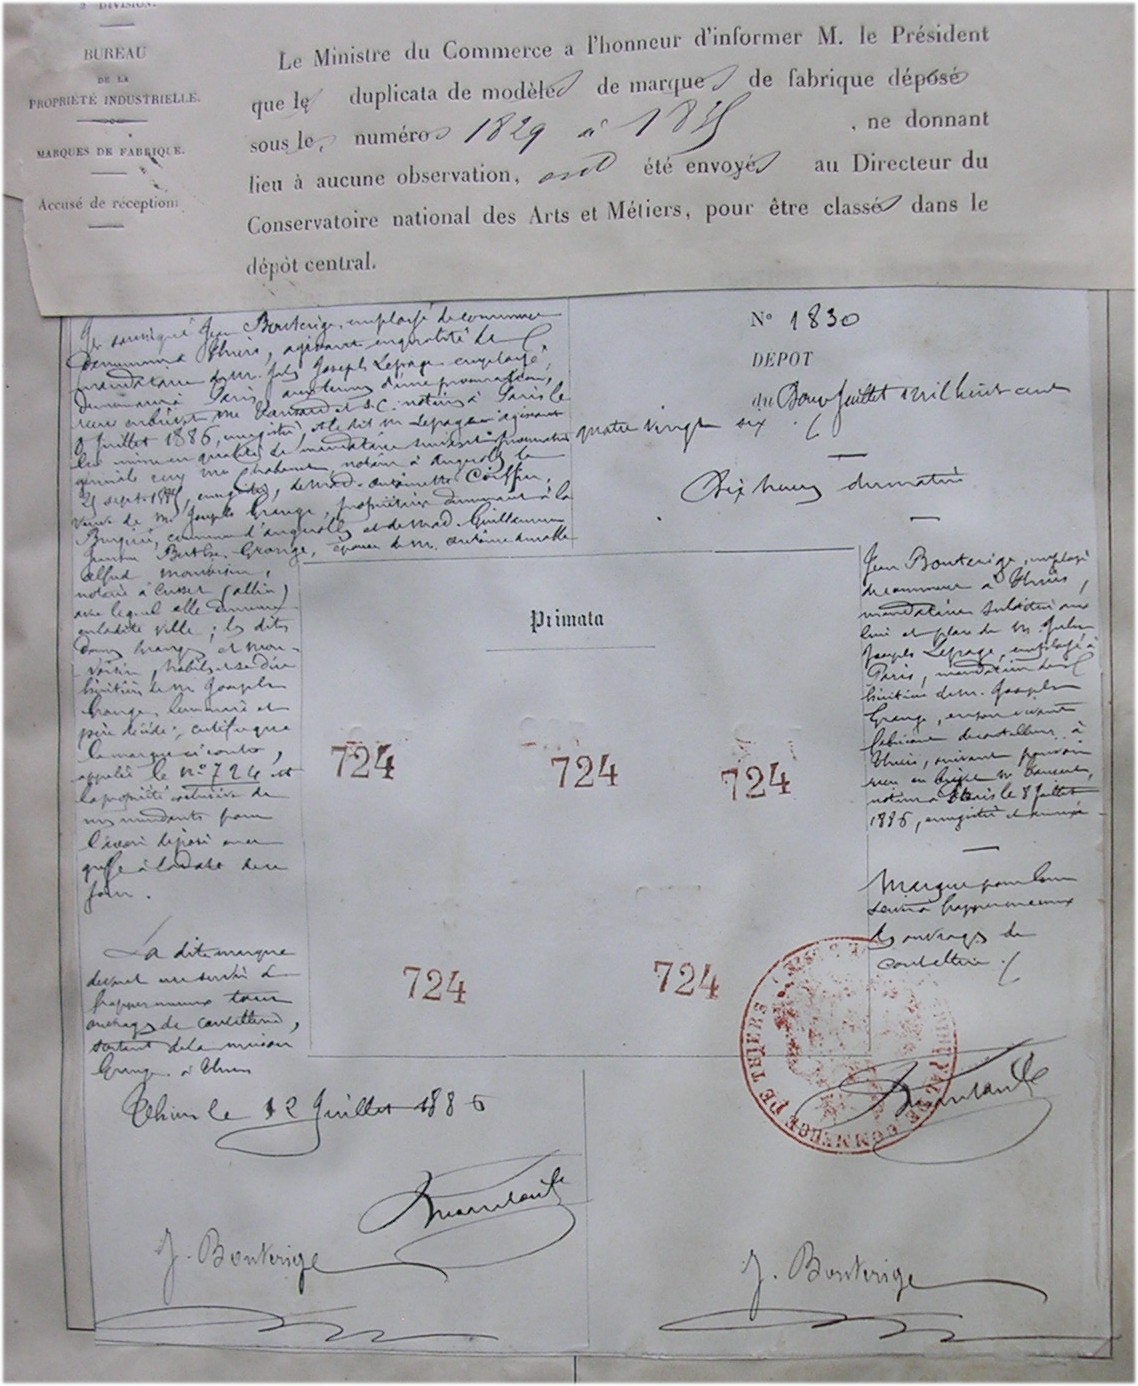 2e DIVISION.
BUREAU
DE LA
PROPRIÉTÉ INDUSTRIELLE.
MARQUES DE FABRIQUE.
Accusé de réception
Le Ministre du Commerce a l'honneur d'informer M. le Président
que le duplicata de modèles de marques de fabrique déposé
sous le numéros 1829 à 1835, ne donnant
lieu à aucune observation, ont été envoyés au Directeur du
Conservatoire national des Arts et Métiers, pour être classés dans le
dépôt central.
Je soussigné Jean Bouterige, employé de commerce
demeurant à Thiers, agissant en qualité de
mandataire de M. Jules Joseph Lepage employé
demeurant à Paris, aux termes d'une procuration,
reçue en brevet Me et S.C. notaires à Paris le
8 Juillet 1886, enregistré et le dit M Lepage agissant
lui même en qualité de mandataire suivant procuration
générale reçu Me Chabanet, notaire à
25 septe, enregistrée, de Mad. Antoinette Coiffier,
veuve de M. Joseph Grange, propriétaire demeurant à la
commune d' et de Mad. Guillaumine
Berthe Grange, épouse de M. Antoine
Alfred Monvoisin,
notaire à Cusset (allier)
avec lequel elle demeure
en ladite ville; les dites
dames Grange et Mon-
voisin, habiles à se dire
héritières de M. Joseph
Grange, leur mari et
père décédé; certifie que
la marque ci contre,
appelée le No 724 est
la propriété exclusive de
mes mandants pour
l'avoir déposé au
greffe à la date de ce
jour.
La dite marque
devant servir à
frapper tous
ouvrages de coutellerie,
sortant de la maison
Grange à Thiers
Thiers le 12 Juillet 1886
J. Bouterige
No 1830
DEPOT
du Douze Juillet mil huit cent
quatre vingt six.
Dix heures du matin
Primata
724
724
724
724
724
Jean Bouterige, employé
de commerce à Thiers,
mandataire substitué aux
lieu et place de M. Jules
Joseph Lepage, employé à
Paris, mandataire des
héritiers de M. Joseph
Grange, en son vivant
fabricant de coutellerie à
Thiers, suivant pouvoir
reçu en brevet Me
notaire à Paris le 8 Juillet
1886, enregistré et annexé
Marque pour
servir à frapper
les ouvrages de
coutellerie.
COMMERCE DE THIERS
J. Bouterige